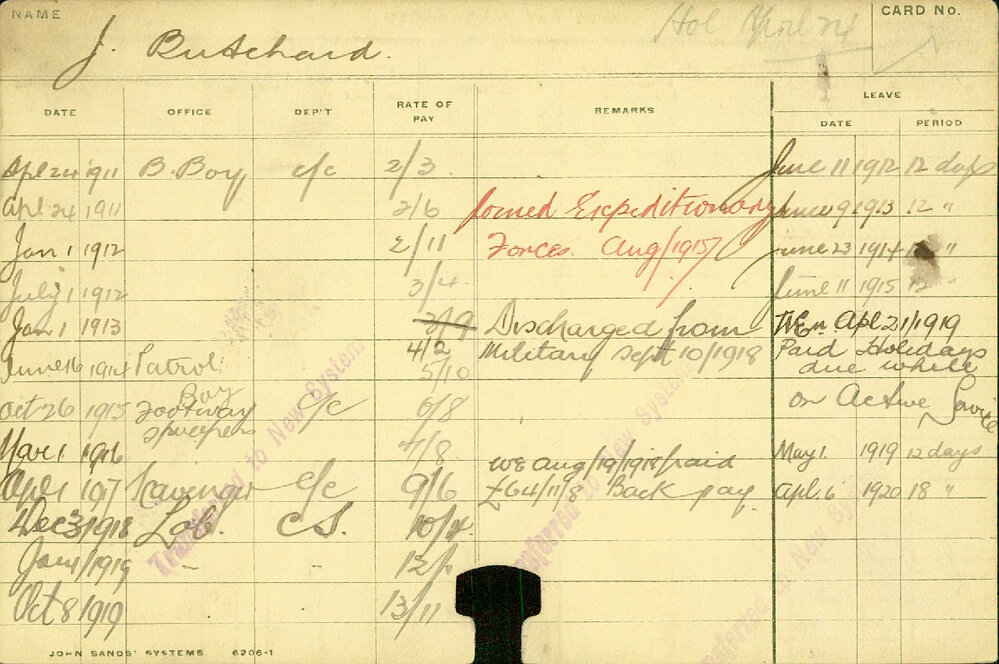 NAME
Hol April 24
CARD No.
J. Pritchard.
DATE OFFICE DEP'T RATE OF PAY REMARKS LEAVE
DATE PERIOD
Apl 24 1911 B. Boy c/c 2/3 June 11 1912 12 days
Apl 24 1911 2/6 Joined Expeditionary June 9 1913 12 "
Jan 1 1912 2/11 Forces. Aug/1915 June 23 1914 "
July 1 1912 3/4 June 11 1915 12 "
Jan 1 1913 3/9 Discharged from Apl 21/1919
4/2 Military Sept 10/1918 Paid Holidays
June 16 1914 Patrol Boy 5/10 due while
Oct 26 1915 Footway c/c 6/8 on Active Service
Sweepers
Mar 1 1916 7/8 May 1. 1919 12 days
WE Aug/19/1918/paid
Apl 1 1917 Scavenger c/c 9/6 £64/11/8 Back pay Apl. 6 1920 18 "
Dec 3/1918 Lab. C.S. 10/
Jan 1/1919 " " 12/
Oct 8 1919 13/11
Transferred to New System
Transferred to New System
Transferred to New System
JOHN SANDS' SYSTEMS 6206-1